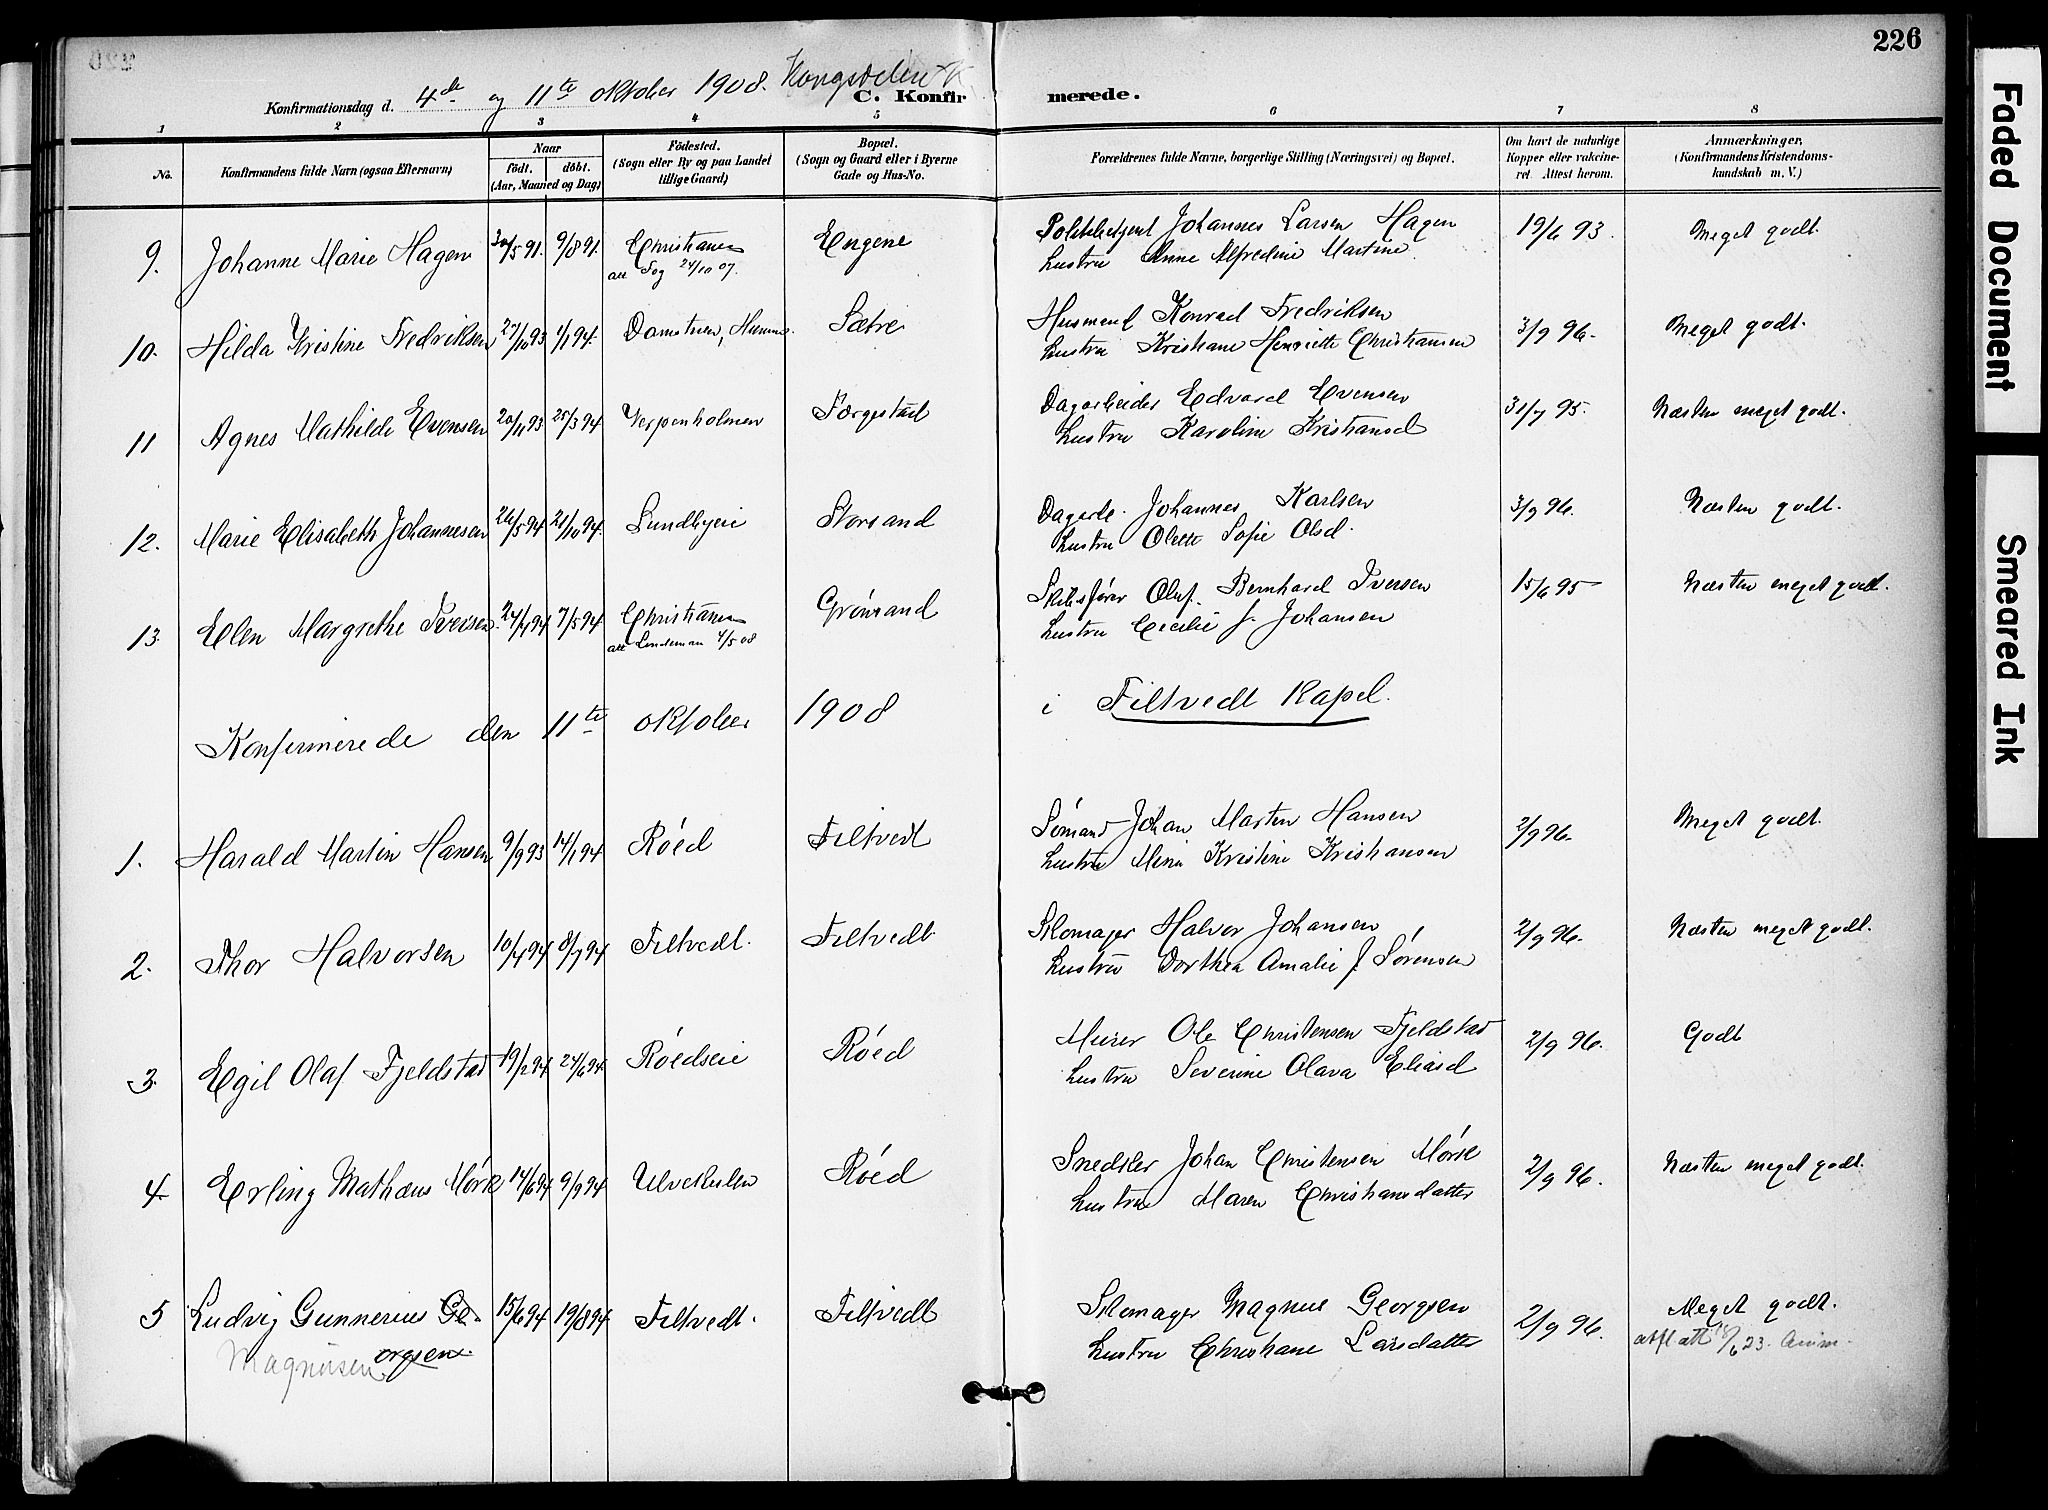 226
Konfirmationsdag d. 4de og 11te oktober 1908. Kongsdelene K
C. Konfirmerede.
1 2 3 4 5 6 7 8
No.
Konfirmandens fulde Navn (ogsaa Efternavn)
Naar
födt. döbt.
(Aar, Maaned og Dag)
Födested.
(Sogn eller By og paa Landet
tillige Gaard)
Bopæl.
(Sogn og Gaard eller i Byerne
Gade og Hus-No.
Forældrenes fulde Navne, borgerlige Stilling (Næringsvei) og Bopæl.
Om havt de naturlige
Kopper eller vakcine-
ret. Attest herom.
Anmærkninger,
(Konfirmandens Kristendoms-
kundskab m. V.)
9. Johanne Marie Hagen 30/5 91. 9/8 91. Christiania Engene Politibetjent Johannes Larsen Hagen 19/6 93. Meget godt.
att Fog 24/10 07. hustru Anne Alfredine Martine
10. Hilda Kristine Fredriksen 27/10 93 1/1 94. Sætre Husmand Konrad Fredriksen 3/9 96. Meget godt.
hustru Kristiane Henriette Christiansen
11 Agnes Mathilde Evensen 20/11 93 25/3 94 Verpenholmen Færgestad Dagarbeider Edvard Evensen 31/7 95. Næsten meget godt.
hustru Karoline Kristiansd
12. Marie Elisabeth Johannesen 26/5 94 21/10 94. Lundbyeie Storsand Dagarb. Johannes Karlsen 3/9 96. Næsten godt.
hustru Olette Sofie Olsd.
13. Elen Margrethe Iversen 24/4 94 7/5 94 Christiania Grønsand Skibsfører Oluf Bernhard Iversen 15/6 95 Næsten meget godt.
att Lindeman 4/5 08 hustru Cecilie f. Johansen
Konfirmerede den 11te oktober 1908 i Filtvedt Kapel.
1. Harald Martin Hansen 9/9 93 14/1 94 Røed Filtvedt Sømand Johan Martin Hansen 2/9 96. Meget godt.
hustru Mina Kristine Kristiansen
2. Thor Halvorsen 10/4 94 8/7 94 Filtvedt. Filtvedt Skomager Halvor Johansen 2/9 96. Næsten meget godt.
hustru Dorthea Amalie f. Sørensen
3. Egil Olaf Fjeldstad 19/2 94 24/6 94. Røedseie Røed Murer Ole Christensen Fjeldstad 2/9 96. Godt
hustru Severine Olava Eliasd
4. Erling Mathæus Mørk 14/6 94 9/9 94 Ulvehulen Røed Snedker Johan Christensen Mørk 2/9 96. Næsten meget godt.
hustru Maren Christiansdatter
5 Ludvig Gunnerius Ge- 15/6 94 19/8 94 Filtvedt. Filtvedt Skomager Magnus Georgsen 2/9 96. Meget godt.
Magnusen orgsen. hustru Christiane Larsdatter /6 23.
Faded Document
Smeared Ink